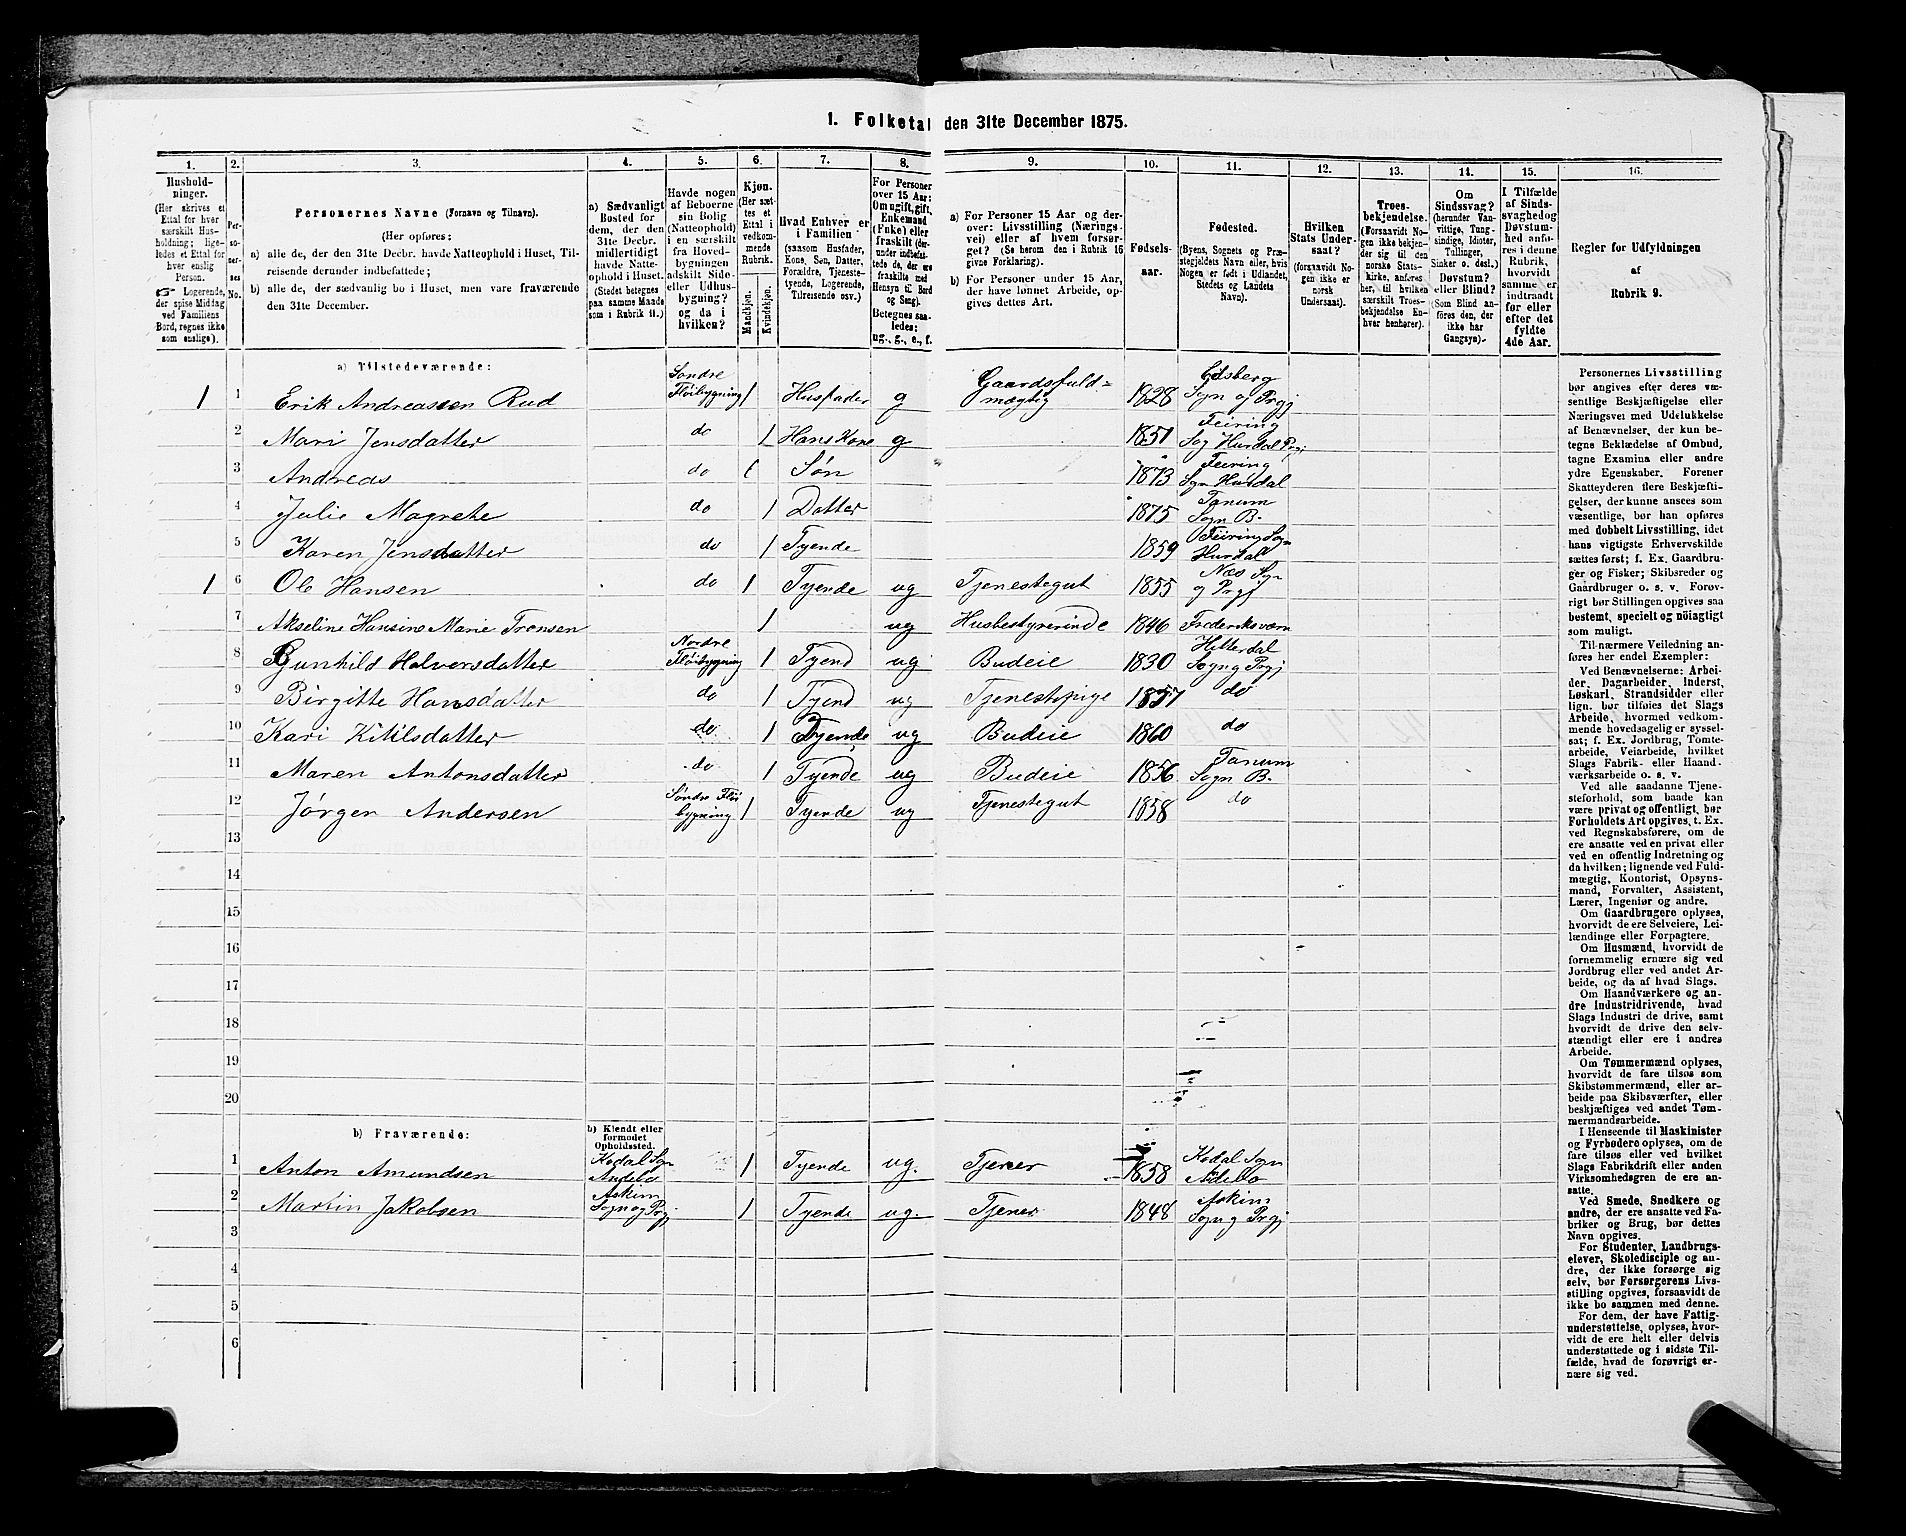 1. Folketal den 31te December 1875.
1. 2. 3. 4. 5. 6. 7. 8. 9. 10. 11. 12. 13. 14. 15. 16.
Hushold-
ninger.
(Her skrives et
Ettal for hver
særskilt Hus-
holdning; lige-
ledes et Ettal for
hver enslig
Person.
☞ Logerende,
der spise Middag
ved Familiens
Bord, regnes ikke
som enslige).
Per-
so-
ner-
nes
No.
Personernes Navne (Fornavn og Tilnavn).
(Her opføres:
a) alle de, der den 31te Decbr. havde Natteophold i Huset, Til-
reisende derunder indbefattede;
b) alle de, der sædvanlig bo i Huset, men vare fraværende
den 31te December.
a) Sædvanligt
Bosted for
dem, der den
31te Decbr.
midlertidigt
havde Natte-
ophold i Huset.
(Stedet betegnes
paa samme Maade
som i Rubrik 11.)
Havde nogen
af Beboerne
sin Bolig
(Natteophold)
i en særskilt
fra Hoved-
bygningen
adskilt Side-
eller Udhus-
bygning?
og da i
hvilken?
Kjøn.
(Her sæt-
tes et
Ettal i
vedkom-
mende
Rubrik.
Mandkjøn.
Kvindekjøn.
Hvad Enhver er
i Familien
(saasom Husfader,
Kone, Søn, Datter,
Forældre, Tjeneste-
tyende, Logerende,
Tilreisende osv.)
For Personer
over 15 Aar:
Om ugift, gift,
Enkemand
(Enke) eller
fraskilt (der-
under indbefatte-
de de, der ere
fraskilte med
Hensyn til Bord
og Seng).
Betegnes saa-
ledes:
ug., g., e., f.
a) For Personer 15 Aar og der-
over: Livsstilling (Nærings-
vei) eller af hvem forsør-
get? (Se herom den i Rubrik 16
givne Forklaring).
b) For Personer under 15 Aar,
der have lønnet Arbeide, op-
gives dettes Art.
Fødsels-
aar.
Fødested.
(Byens, Sognets og Præ-
stegjeldets Navn eller, hvis
Nogen er født i Udlandet,
Stedets og Landets
Navn).
Hvilken
Stats Under-
saat?
(forsaavidt No-
gen ikke er
norsk
Undersaat).
Troes-
bekjendelse.
(Forsaavidt No-
gen ikke bekjen-
der sig til den
norske Stats-
kirke, anføres
her, til hvilken
særskilt Troes-
bekjendelse En-
hver henhører).
Om
Sindssvag?
(herunder Van-
vittige, Tung-
sindige, Idioter,
Tullinger,
Sinker o. desl.)
Døvstum?
eller Blind?
(Som Blind an-
føres den, der
ikke har
Gangsyn).
I Tilfælde
af Sinds-
svaghed og
Døvstum-
hed anfø-
res i denne
Rubrik,
hvorvidt
samme er
indtraadt
før eller
efter det
fyldte
4de Aar.
Regler for Udfyldningen
af
Rubrik 9.
a) Tilstedeværende:
1 1 Erik Andreassen Rud Søndre Fløibygning 1 Husfader g Gaardsfuld=mægtig 1828 Edsberg Sogn og Prgj
2 Mari Jensdatter do 1 Hans Kone g 1851 Feiring Sog Hurdal Prgj
3 Andreas do 1 Søn 1873 Feiring Sgn Hurdal
4 Julie Magrethe do 1 Datter 1875 Tanum Sogn B.
5 Karen Jensdatter do 1 Tyende 1859 Feiring Sog= Hurdal
1 6 Ole Hansen do 1 Tyende ug Tjenestegut 1855 Næs Sgn og Prgj
7 Akseline Hansine Marie Tronsen 1 ug Husbestyrerinde 1846 Frederiksværn
8 Gunhild Halversdatter Nordre Fløibygning 1 Tyend ug Budeie 1830 Hitterdal Sogn og Prgj
9 Birgitte Hansdatter do 1 Tyend ug Tjenestepige 1857 do
10 Kari Kitilsdatter do 1 Tyende ug Budeie 1860 do
11 Maren Antonsdatter do 1 Tyende ug Budeie 1856 Tanum Sogn B.
12 Jørgen Andersen Søndre Fløi bygning 1 Tyende ug Tjenestegut 1858 do
13
14
15
16
17
18
19
20
b) Fraværende: b) Kjendt eller
formodet
Opholdssted.
1 Anton Amundsen Kodal Sgn Andebo 1 Tyende ug. Tjener 1858 Kodal Sogn Adebo
2 Martin Jakobsen Askim Sogn og Prgj 1 Tyende ug. Tjener 1848 Askim Sogn og Prgj
3
4
5
6
Personernes Livsstilling
bør angives efter deres væ-
sentlige Beskjæftigelse eller
Næringsvei med Udelukkelse
af Benævnelser, der kun be-
tegne Beklædelse af Ombud,
tagne Examina eller andre
ydre Egenskaber. Forener
Skatteyderen flere Beskjæfti-
gelser, der kunne ansees som
væsentlige, bør han opføres
med dobbelt Livsstilling, idet
hans vigtigste Erhvervskilde
sættes først; f. Ex. Gaardbru-
ger og Fisker; Skibsreder og
Gaardbruger o. s. v. Forøv-
rigt bør Stillingen opgives saa
bestemt, specielt og nøiagtigt
som muligt.
Til nærmere Veiledning an-
føres her endel Exempler:
Ved Benævnelserne: Arbei-
der, Dagarbeider, Inderst,
Løskarl, Strandsidder eller
lign. bør tilføies det Slags
Arbeide, hvormed vedkom-
mende hovedsagelig er syssel-
sat; f. Ex. Jordbrug, Tomte-
arbeide, Veiarbeide, hvilket
Slags Fabrik- eller Haand-
værksarbeide o. s. v.
Ved alle saadanne Tjene-
steforhold, som baade kan
være privat og offentligt, bør
Forholdets Art opgives, t. Ex.
ved Regnskabsførere, om de
ere ansatte ved en privat eller
ved en offentlig Indretning og
da hvilken; lignende ved Fuld-
mægtig, Kontorist, Opsyns-
mand, Forvalter, Assistent,
Lærer, Ingeniør og andre.
Om Gaardbrugere oplyses,
hvorvidt de ere Selveiere, Lei-
lændinge eller Forpagtere.
Om Husmænd, hvorvidt de
fornemmelig ernære sig ved
Jordbrug eller ved andet Ar-
beide, og da af hvad Slags.
Om Haandværkere og an-
dre Industridrivende, hvad
Slags Industri de drive, samt
hvorvidt de drive den selv-
stændigt eller ere i andres
Arbeide.
Om Tømmermænd oplyses,
hvorvidt de fare tilsøs som
Skibstømmermænd, eller ar-
beide paa Skibsværfter, eller
beskjæftiges ved andet Tøm-
mermandsarbeide.
I Henseende til Maskinister
og Fyrbødere oplyses, om de
fare tilsøs eller ved hvilket
Slags Fabrikdrift eller anden
Virksomhedsgren de ere an-
satte.
Ved Smede, Snedkere og
andre, der ere ansatte ved Fa-
briker og Brug, bør dettes
Navn opgives.
For Studenter, Landbrugs-
elever, Skoledisciple og an-
dre, der ikke forsørge sig
selv, bør Forsørgerens Livs-
stilling opgives, forsaavidt de
ikke bo sammen med denne.
For dem, der have Fattig-
understøttelse, oplyses, hvor-
vidt de ere helt eller delvis
understøttede og i sidste Til-
fælde, hvad de forøvrigt er-
nære sig ved.